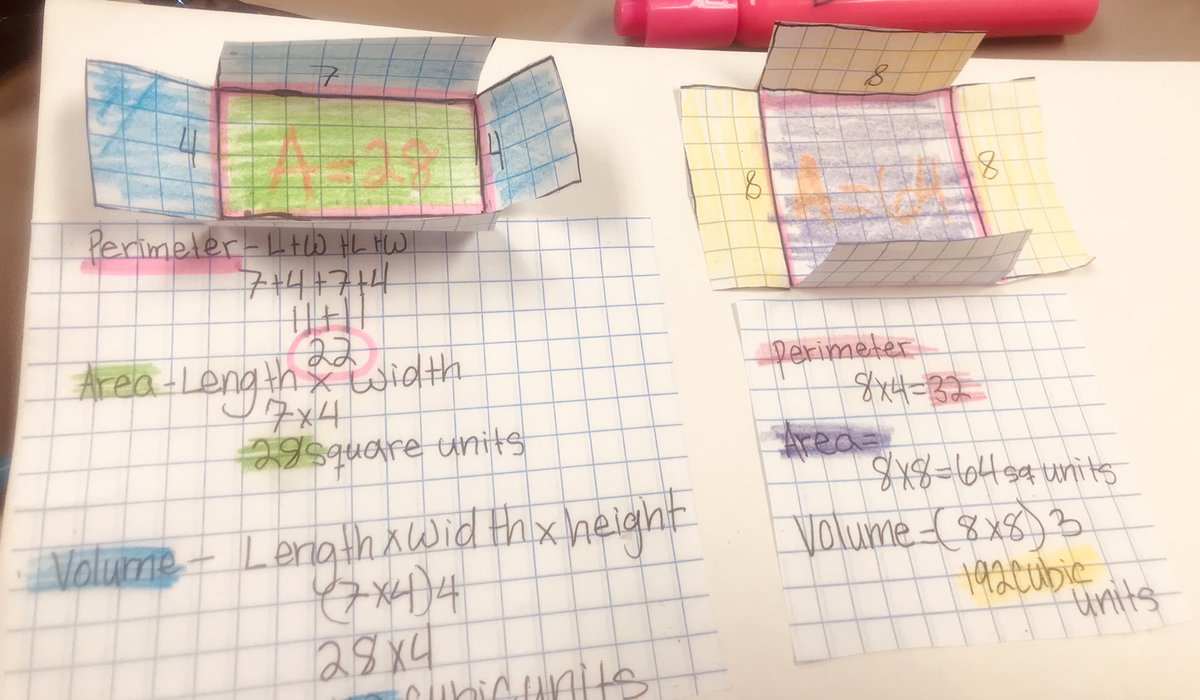 7
4
A=28
4
Perimeter - L+W+L+W
7+4+7+4
11+11
22
Area - Length x Width
7x4
28 square units
Volume - Length x width x height
(7x4)4
28x4
cubic units
8
8
A=64
8
Perimeter
8x4=32
Area=
8x8=64 sq units
Volume=(8x8)3
192 cubic
units